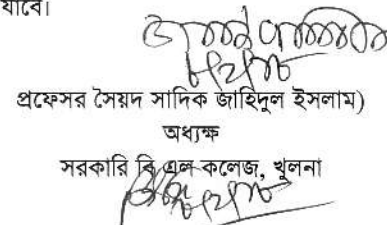 যাবে।
প্রফেসর সৈয়দ সাদিক জাহিদুল ইসলাম)
অধ্যক্ষ
সরকারি বি এল কলেজ, খুলনা